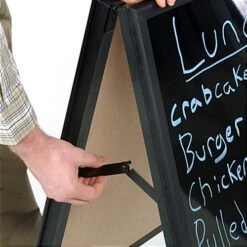 Lun
crabcak
Burger
Chicken
Pulle